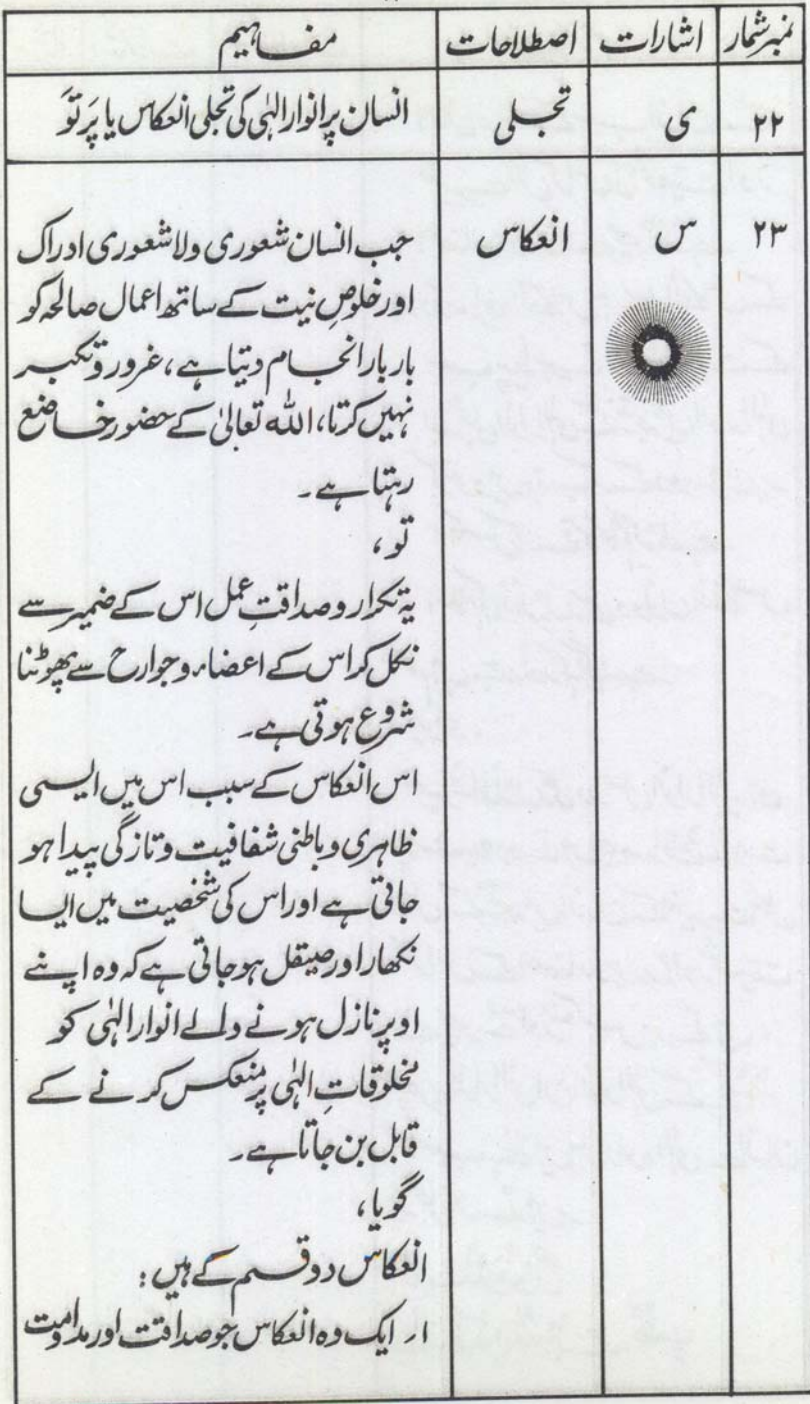 نمبرشمار اشارات اصطلاحات مفاہیم
۲۲ ی تجلی انسان پر انوار الٰہی کی تجلی انعکاس یا پَرتَو
۲۳ س انعکاس جب انسان شعوری ولاشعوری ادراک
اور خلوصِ نیت کے ساتھ اعمال صالحہ کو
بار بار انجام دیتا ہے، غرور و تکبر
نہیں کرتا، اللہ تعالیٰ کے حضور خاضع
رہتا ہے۔
تو،
یہ تکرار و صداقتِ عمل اس کے ضمیر سے
نکل کر اس کے اعضاء و جوارح سے پھوٹنا
شروع ہوتی ہے۔
اس انعکاس کے سبب اس میں ایسی
ظاہری و باطنی شفافیت و تازگی پیدا ہو
جاتی ہے اور اس کی شخصیت میں ایسا
نکھار اور صیقل ہوجاتی ہے کہ وہ اپنے
اوپر نازل ہونے والے انوار الٰہی کو
مخلوقاتِ الٰہی پر منعکس کرنے کے
قابل بن جاتا ہے۔
گویا،
انعکاس دو قسم کے ہیں:
۱۔ ایک وہ انعکاس جو صداقت اور مداومت